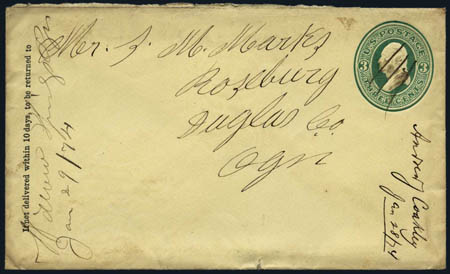 Mr. S. M. Marks
Roseburg
Duglas Co.
Ogn
U.S. POSTAGE
3 3
THREE CENTS
If not delivered within 10 days, to be returned to
Jan 29/74
Andrew J Coakley
Jan 28/74